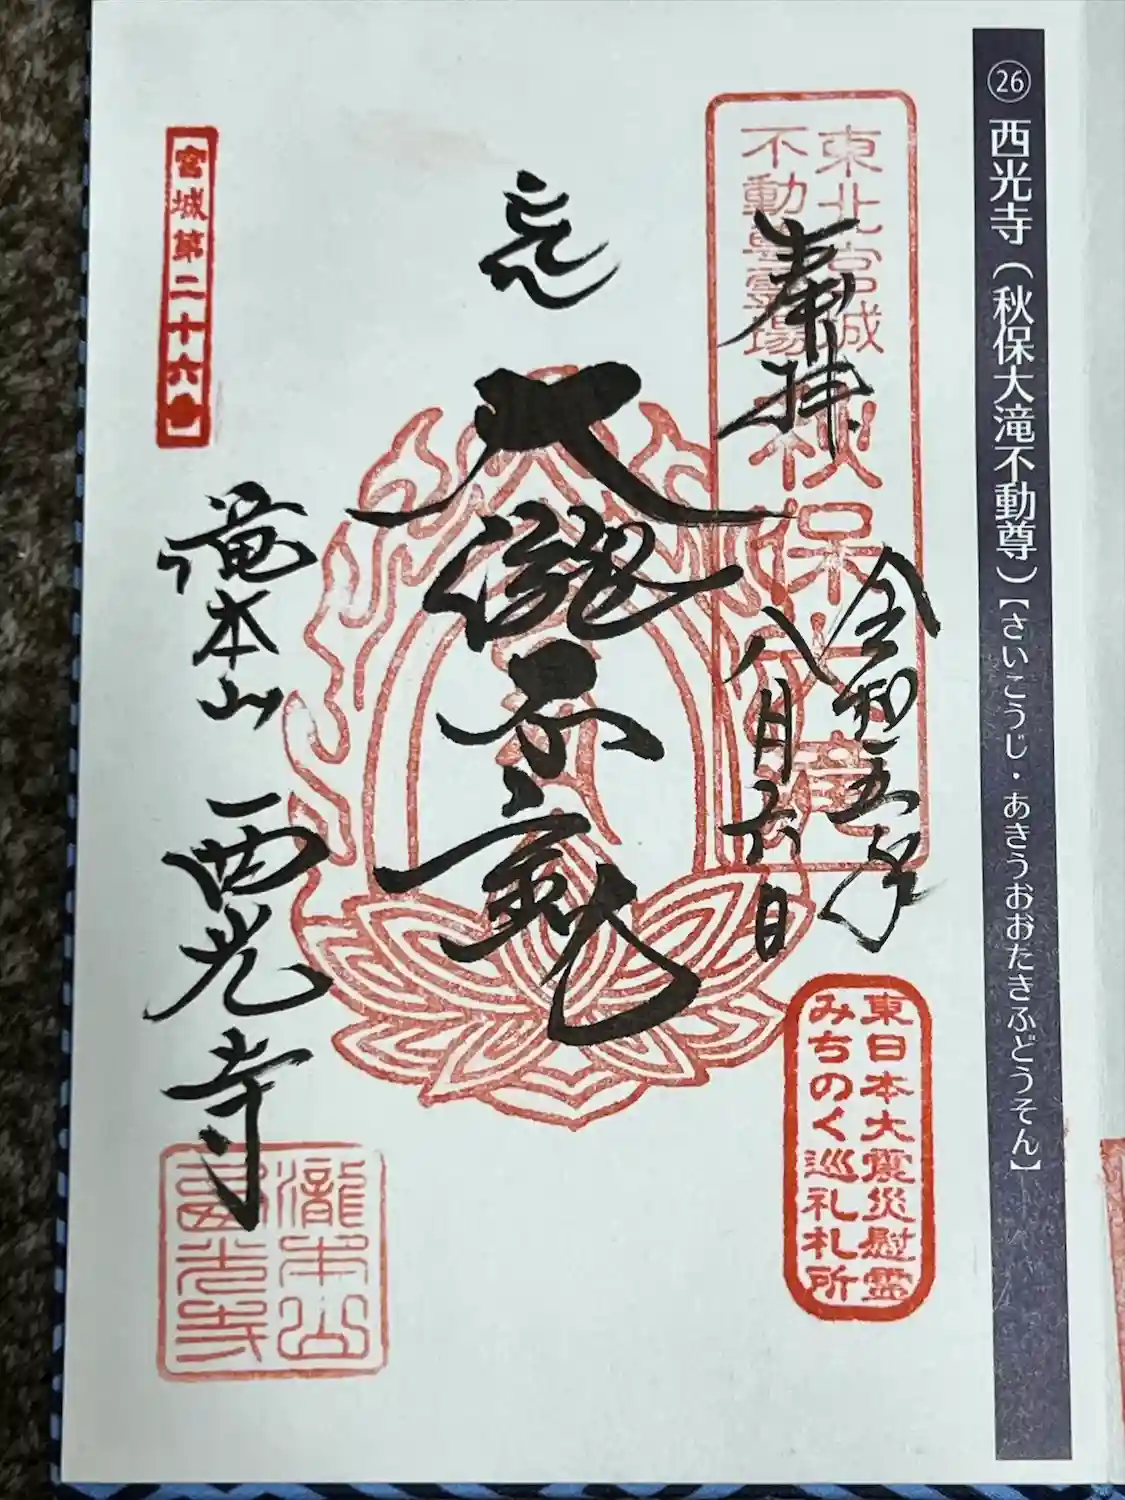 ㉖ 西光寺（秋保大滝不動尊）【さいこうじ・あきうおおたきふどうそん】
東北宮城
不動尊霊場
秋保大滝
奉拝
令和五年
八月六日
東日本大震災慰霊
みちのく巡礼札所
大瀧不動
宮城第二十六番
滝本山 西光寺
瀧本山
西光寺